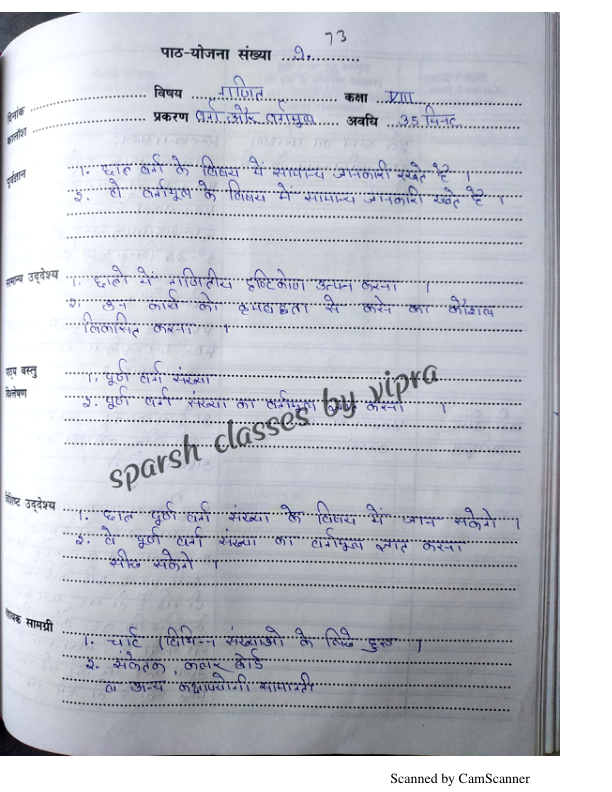 73
पाठ-योजना संख्या ..२...........
विषय गणित कक्षा VIII
दिनांक
प्रकरण वर्ग और वर्गमूल अवधि 35 मिनट
कालांश
पूर्वज्ञान
1. छात्र वर्ग के विषय में सामान्य जानकारी रखते है ।
२. वे वर्गमूल के विषय में सामान्य जानकारी रखते है ।
सामान्य उद्देश्य 1. छात्रो में गणितीय दृष्टिकोण उत्पन करना ।
२. उन कार्य को क्रमबद्धता से करने का कौशल
विकासित करना ।
पाठ्य वस्तु 1. पूर्ण वर्ग संख्या
विश्लेषण २. पूर्ण वर्ग संख्या का वर्गमूल करना ।
sparsh classes by vipra
विशिष्ट उद्देश्य 1. छात्र पूर्ण वर्ग संख्या के विषय में जान सकेगे ।
२. वे पूर्ण वर्ग संख्या का वर्गमूल ज्ञात करना
सीख सकेगे ।
सहायक सामग्री
1. चार्ट विभिन्न संख्याओ के लिखे हुए ।
२. संकेतक, कलर बोर्ड
व अन्य कक्षापयोगी सामाग्री
Scanned by CamScanner